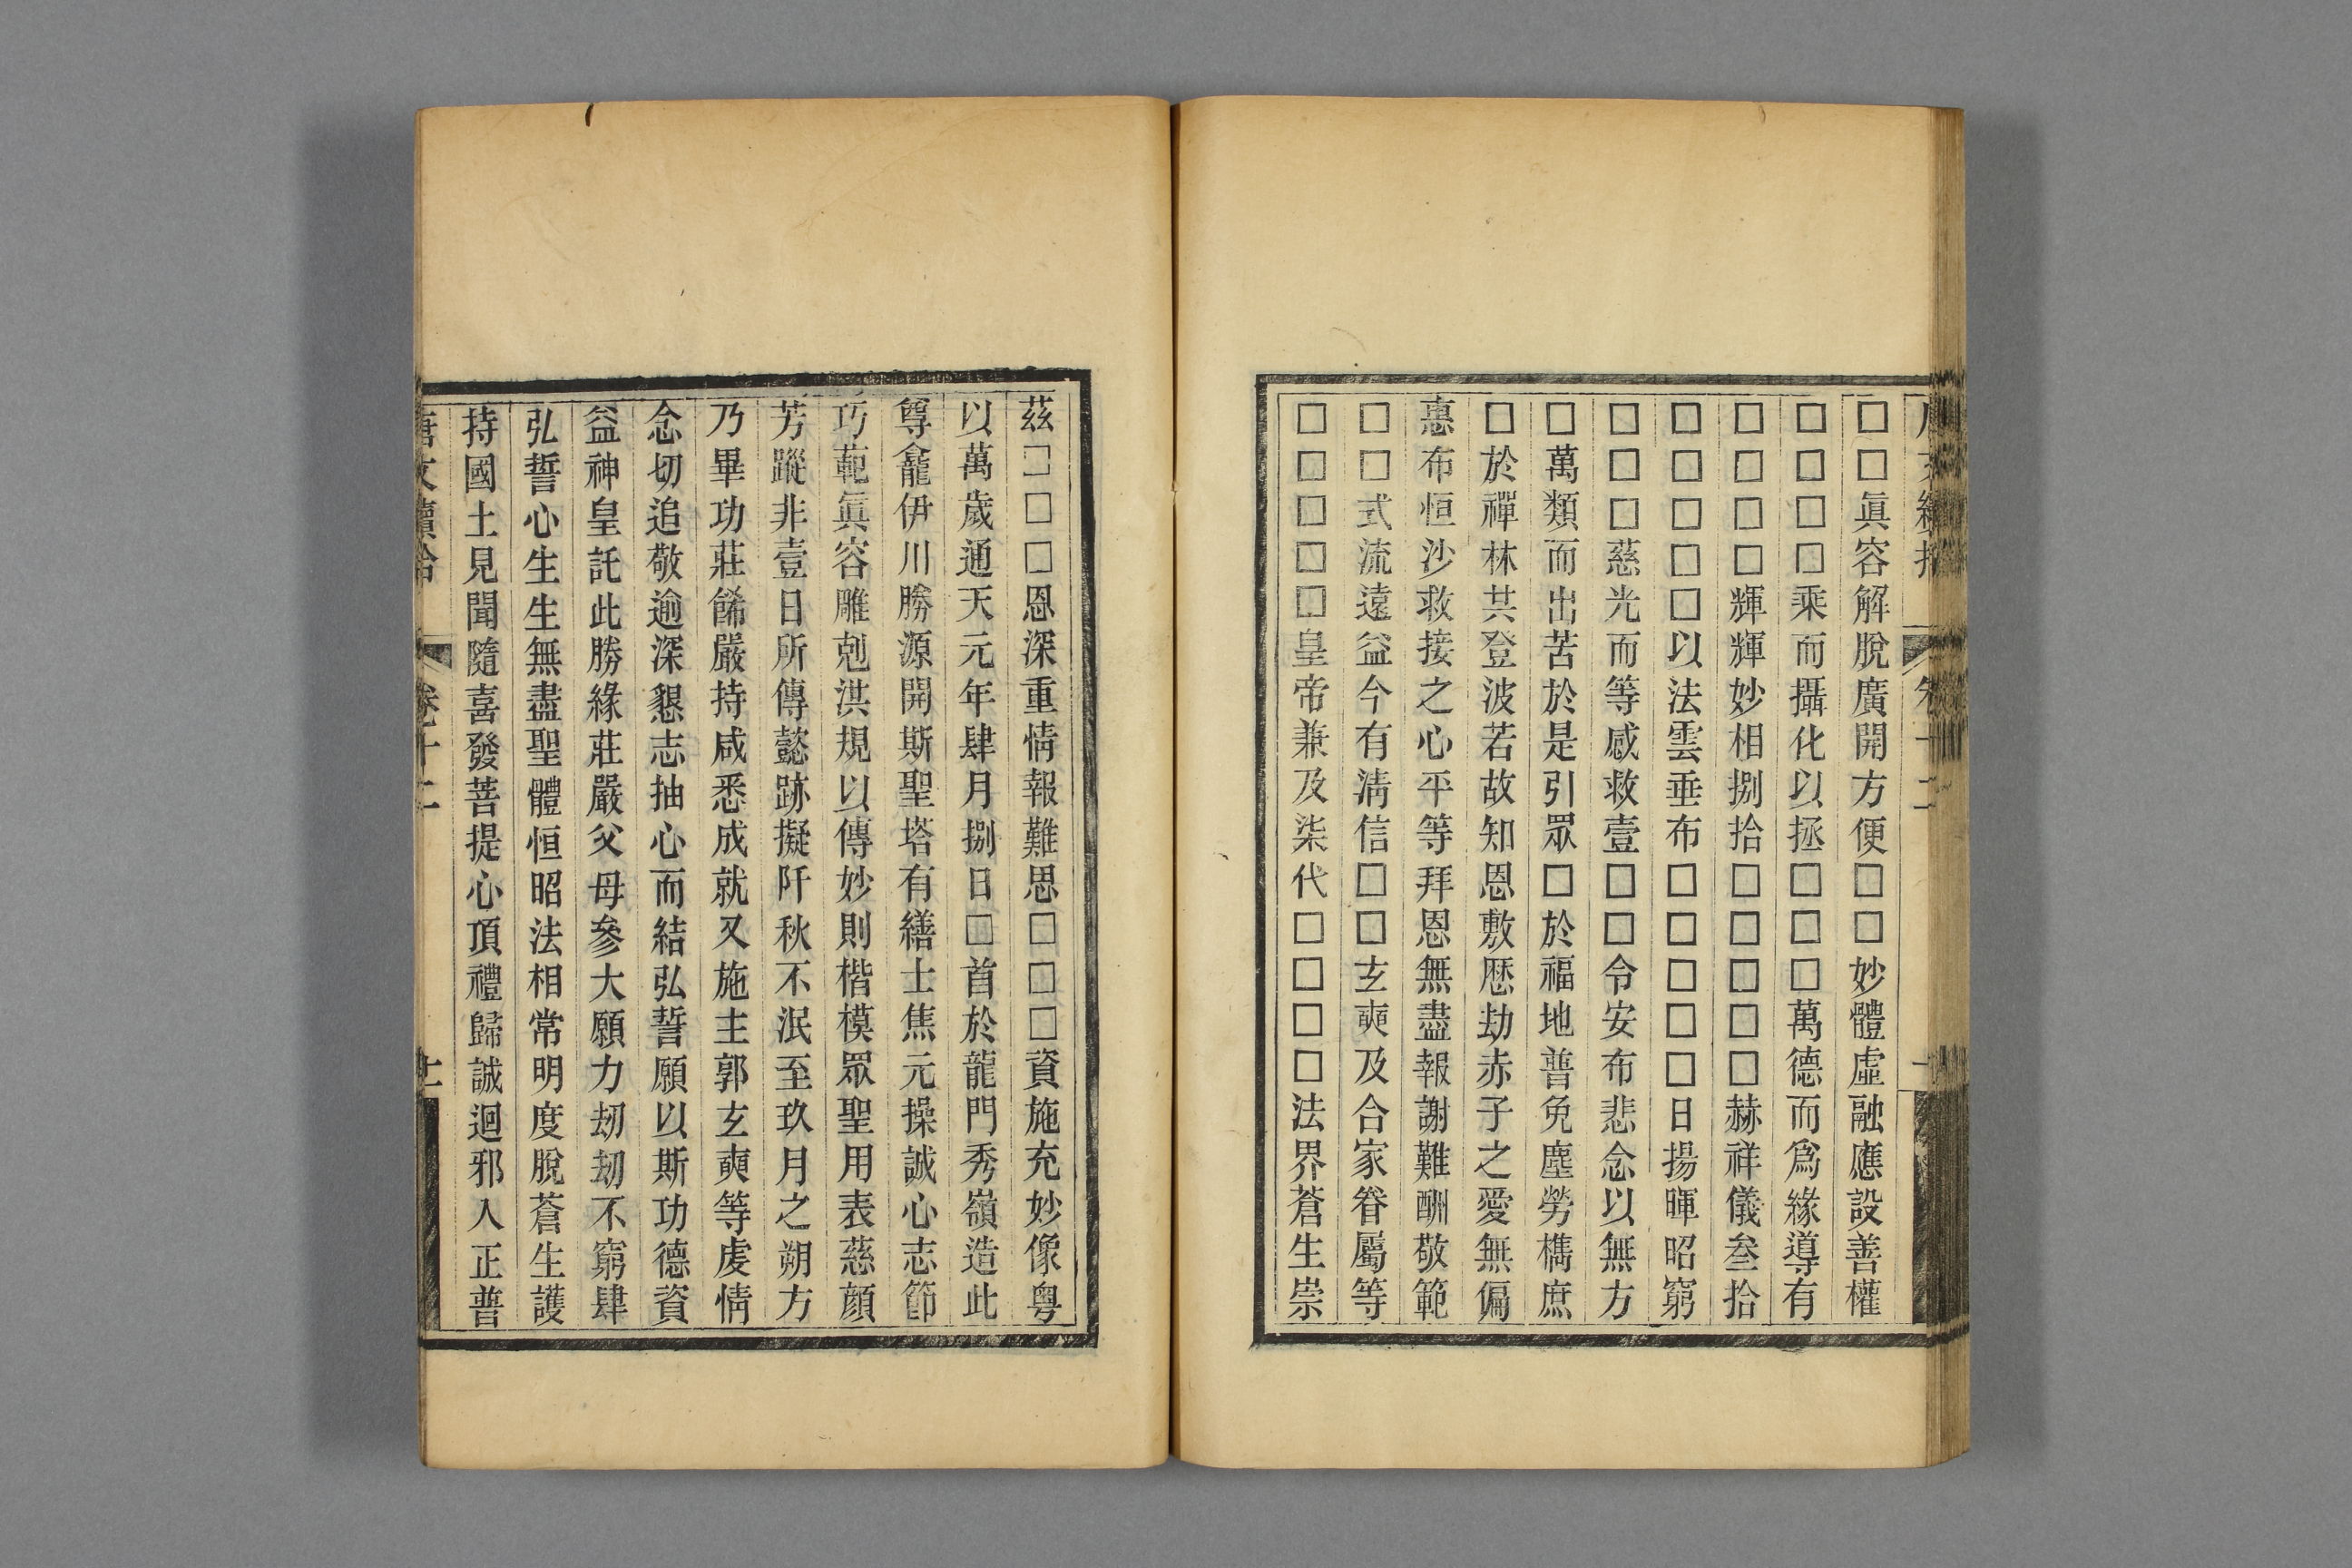 □□眞容解脫廣開方便□□妙體虛融應設善權
□□□□乘而攝化以拯□□□萬德而爲緣導有
□□□□輝輝妙相捌拾□□□□□赫祥儀叁拾
□□□□□以法雲垂布□□□□□日揚暉昭窮
□□□慈光而等感救壹□□令安布悲念以無方
□萬類而出苦於是引眾□於福地普免塵勞樵庶
□於禪林共登波若故知恩敷歷劫赤子之愛無偏
惠布恒沙救接之心平等拜恩無盡報謝難酬敬範
□□式流遠益今有淸信□□玄奭及合家眷屬等
□□□□□皇帝兼及柒代□□□□法界蒼生崇
茲□□□恩深重情報難思□□□資施充妙像粤
以萬歲通天元年肆月捌日□首於龍門秀嶺造此
尊龕伊川勝源開斯聖塔有繕士焦元操誠心志節
巧範眞容雕剋洪規以傳妙則楷模眾聖用表慈顔
芳蹤非壹日所傳懿跡擬阡秋不泯至玖月之朔方
乃畢功莊餙嚴持咸悉成就又施主郭玄奭等虔情
念切追敬逾深懇志抽心而結弘誓願以斯功德資
益神皇託此勝緣莊嚴父母參大願力刼刼不窮肆
弘誓心生生無盡聖體恒昭法相常明度脫蒼生護
持國土見聞隨喜發菩提心頂禮歸誠迴邪入正普
唐文續拾 卷十二 十一